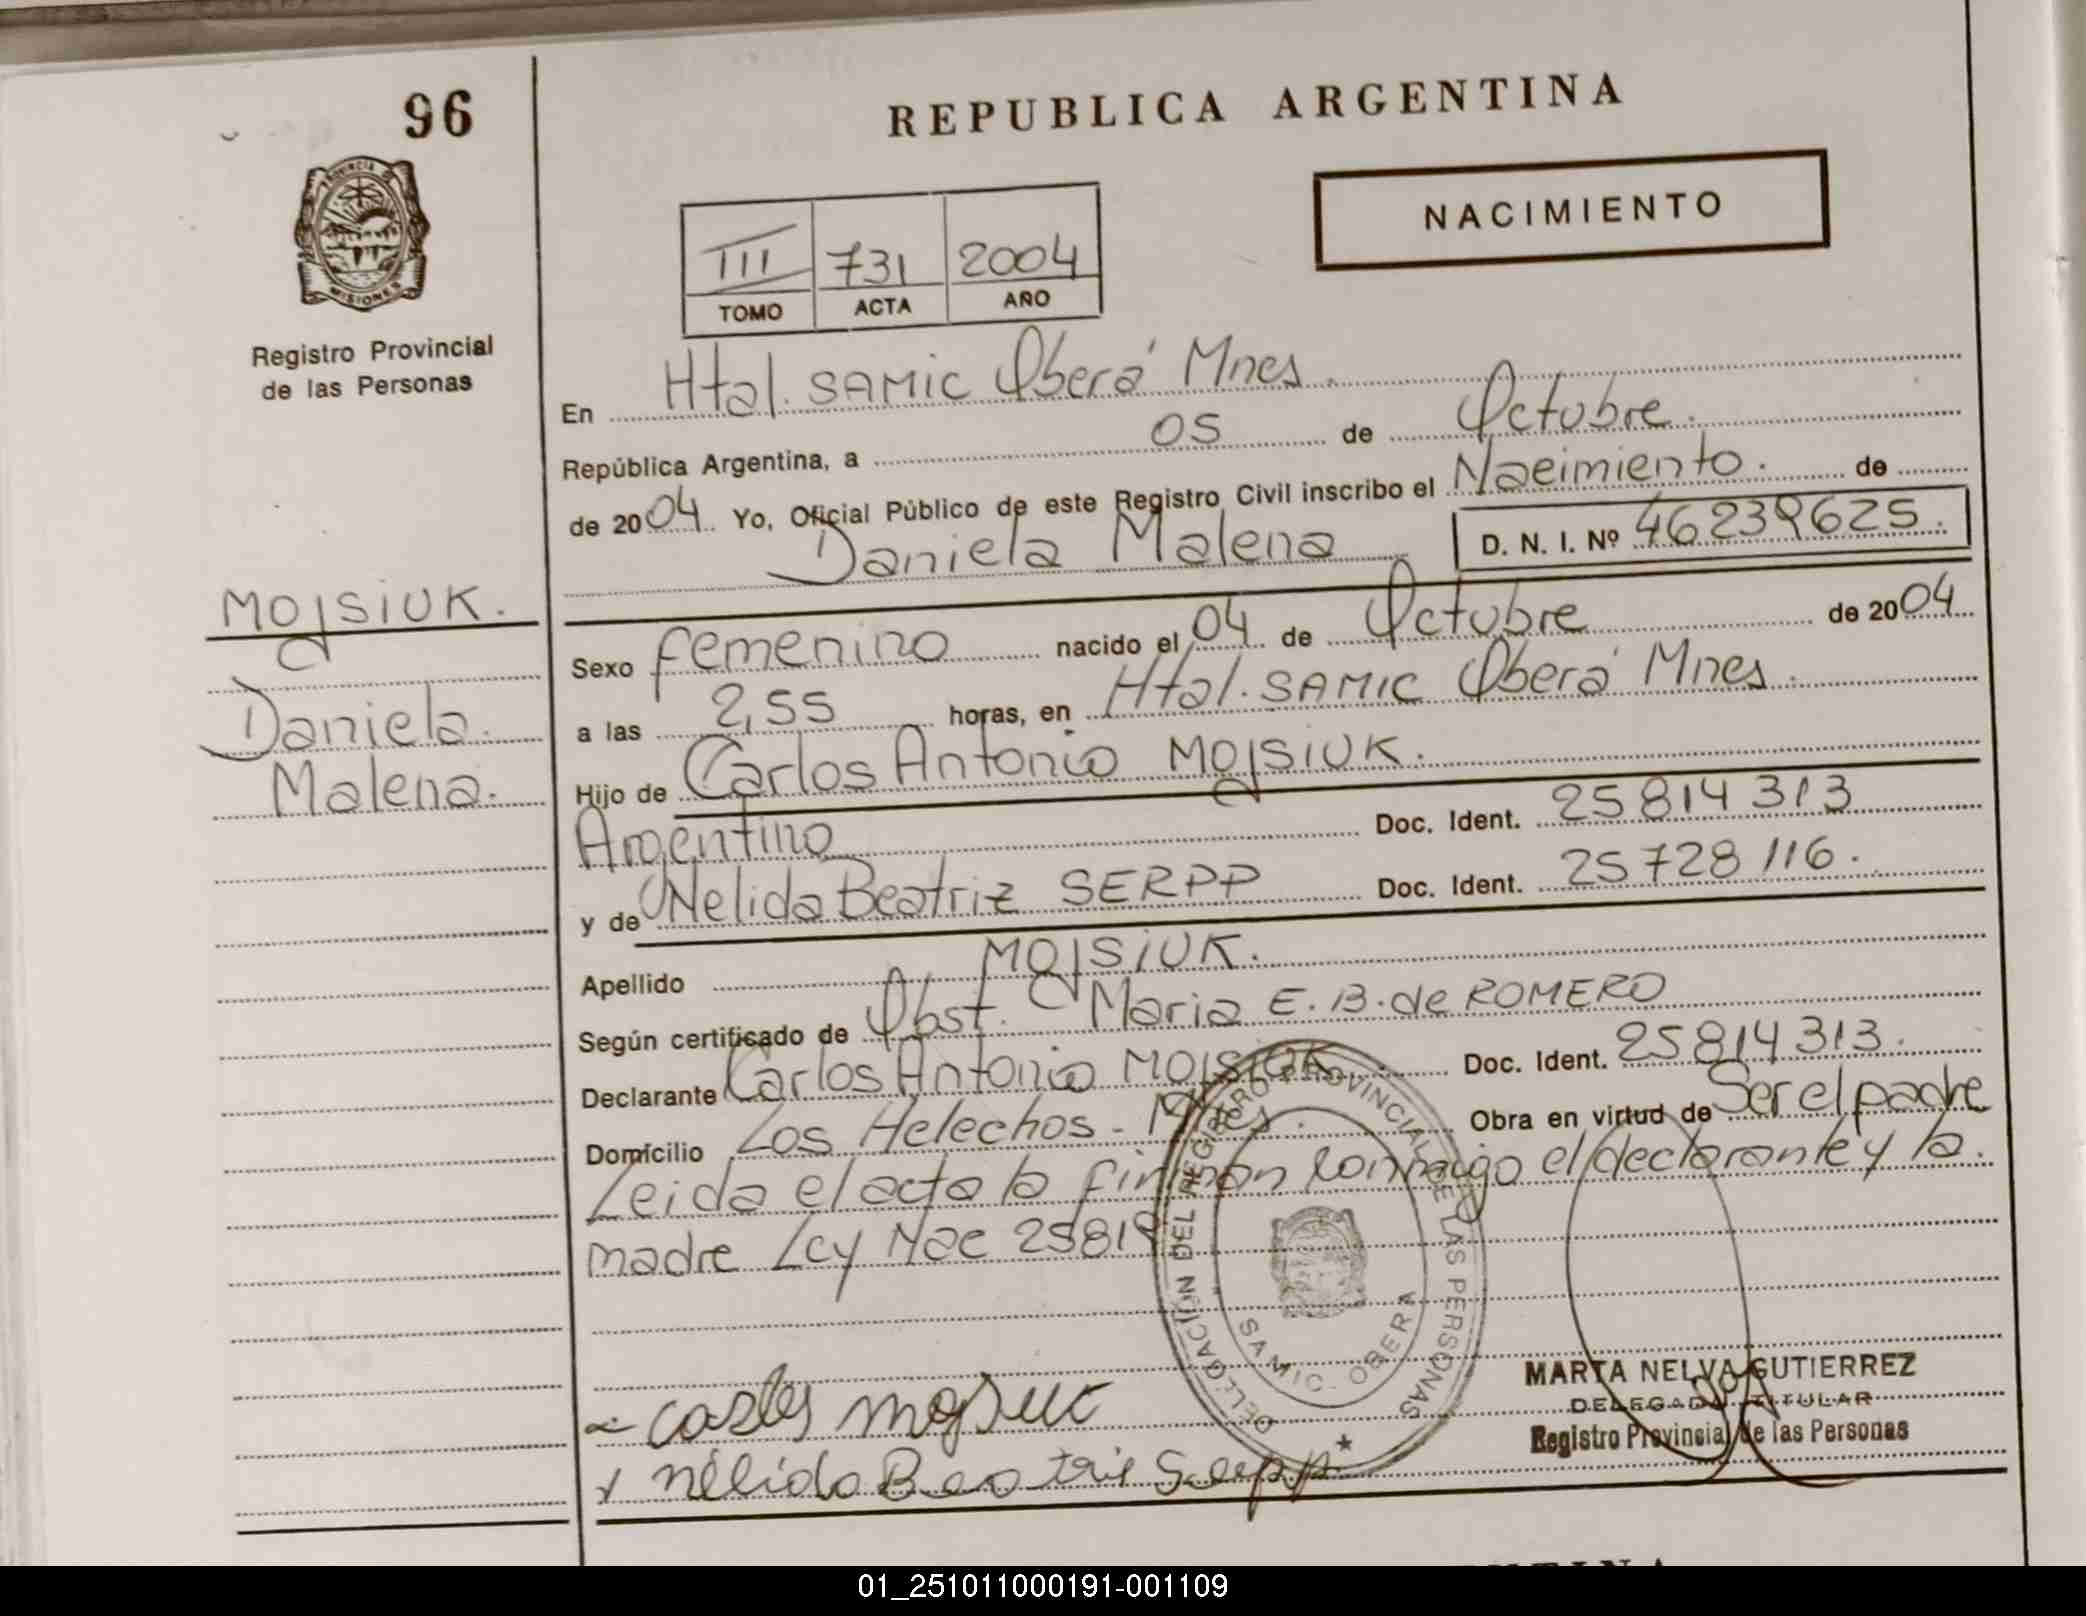 96
REPUBLICA ARGENTINA
NACIMIENTO
PROVINCIA DE
MISIONES
Registro Provincial
de las Personas
III 731 2004
TOMO ACTA AÑO
En Htal. SAMIC Oberá Mnes.
República Argentina, a 05 de Octubre.
de 2004. Yo, Oficial Público de este Registro Civil inscribo el Nacimiento. de
Daniela Malena D. N. I. Nº 46239625.
MOJSIUK.
Daniela.
Malena.
Sexo femenino nacido el 04 de Octubre de 2004
a las 2,55 horas, en Htal. SAMIC Oberá Mnes.
Hijo de Carlos Antonio MOJSIUK.
Argentino Doc. Ident. 25814313
y de Nelida Beatriz SERPP Doc. Ident. 25728116.
Apellido MOJSIUK.
Según certificado de Obst. Maria E. B. de ROMERO
Declarante Carlos Antonio MOJSIUK Doc. Ident. 25814313.
Domicilio Los Helechos - Mnes. Obra en virtud de Ser el padre
Leida el acta la firman conmigo el declarante y la
madre Ley Nac 25819
DELEGACIÓN DEL REGISTRO PROVINCIAL DE LAS PERSONAS
SAMIC - OBERA
MARTA NELVA GUTIERREZ
DELEGADA TITULAR
Registro Provincial de las Personas
Carlos Mojsiuk
Nélida Beatris Serpp
01_251011000191-001109